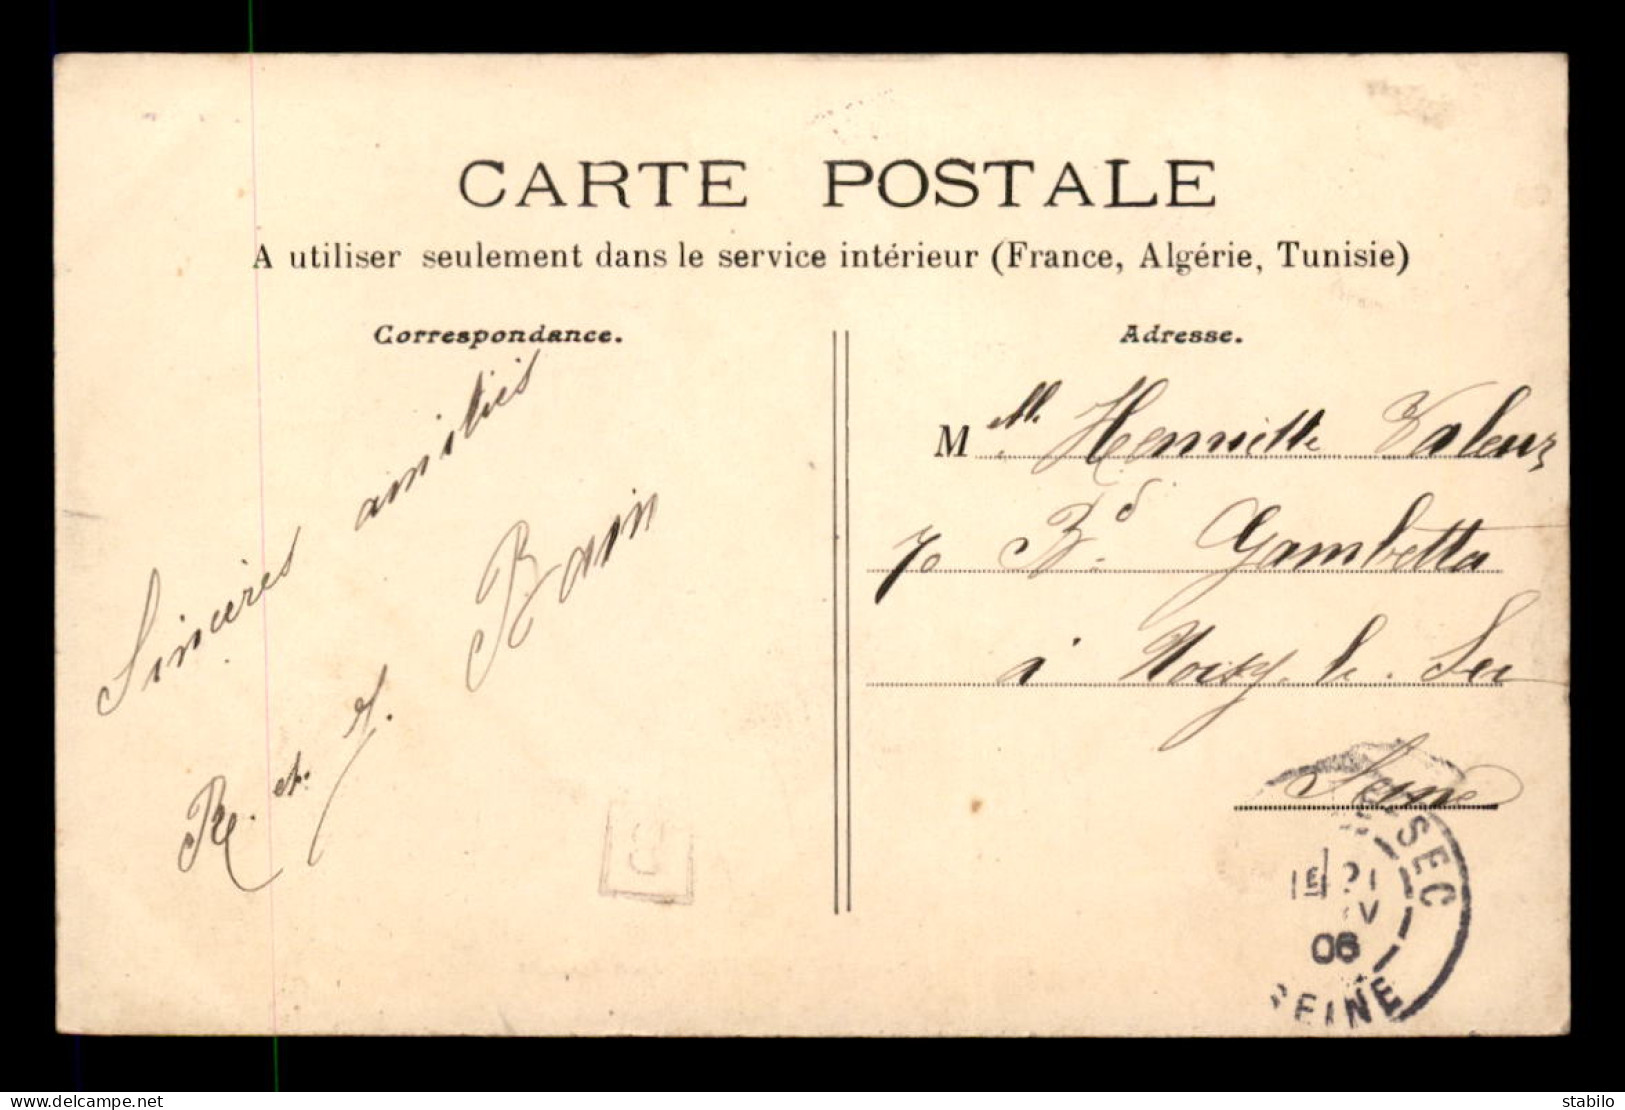 CARTE POSTALE
A utiliser seulement dans le service intérieur (France, Algérie, Tunisie)
Correspondance.
Sincères amitiés
R. et J. Bain
Adresse.
Melle Henriette
Bd Gambetta
à Noisy-le-Sec
Seine
SEC
1E
06
SEINE
www.delcampe.net
stabilo